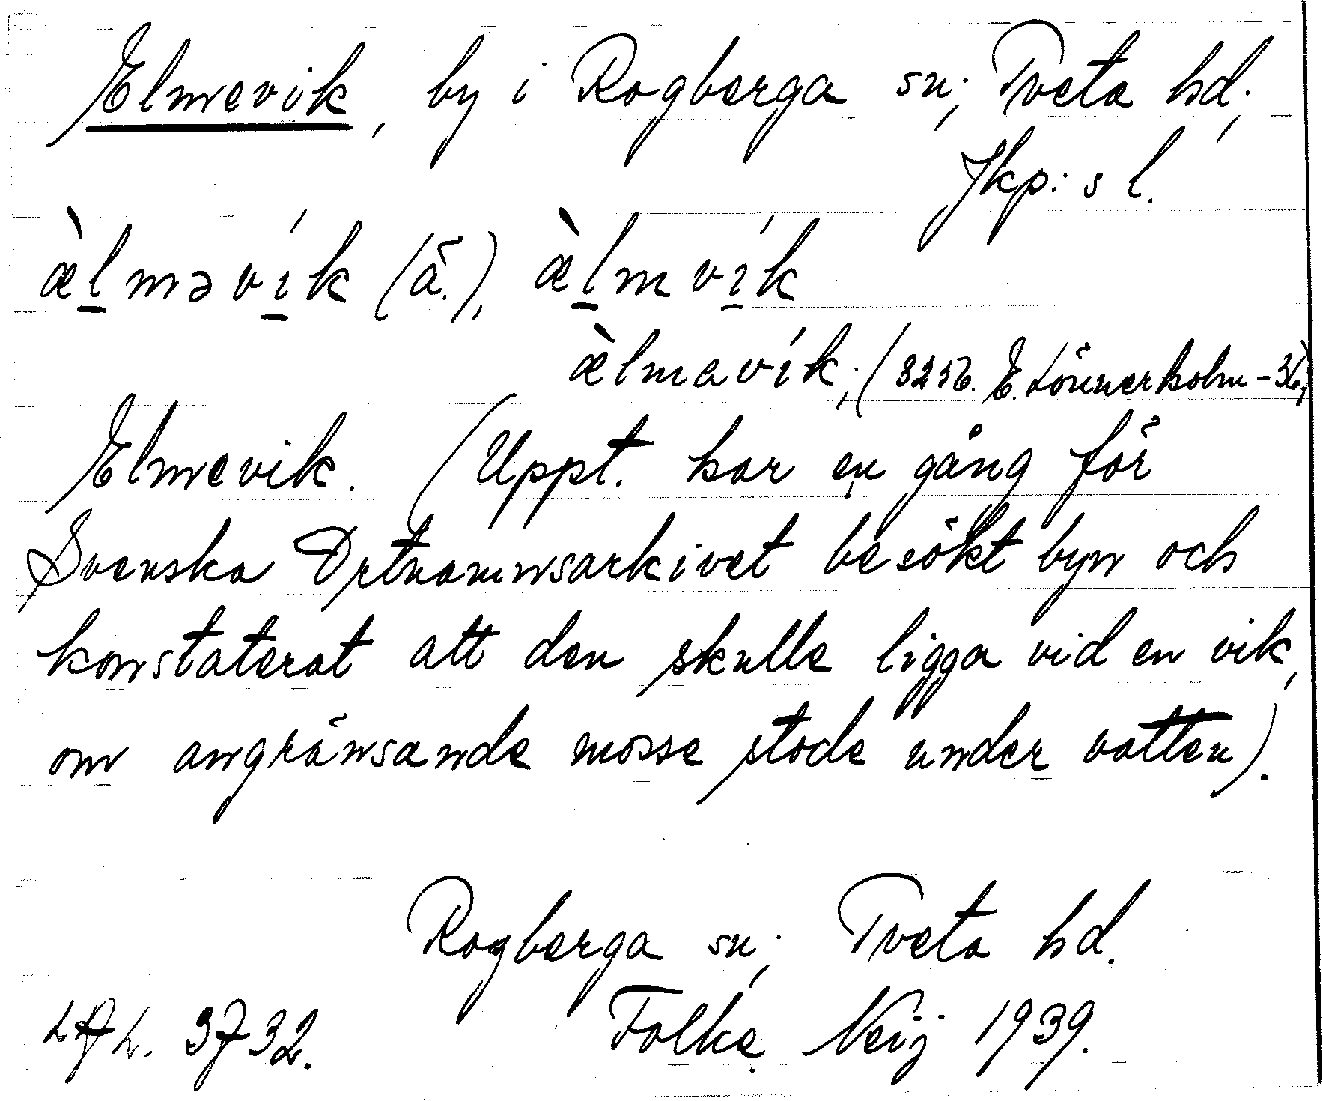 Elmevik, by i Rogberga sn; Tveta hd;
Jkp: s l.
æ̀lməvík (ä.), æ̀lmvík
æ̀lmavík; (3256. E. Lönnerholm -36)
Elmevik. (Uppt. har en gång för
Svenska Ortnamnsarkivet besökt byn och
konstaterat att den skulle ligga vid en vik,
om angränsande mosse stode under vatten).
Rogberga sn; Tveta hd.
3732. Folke Neij 1939.